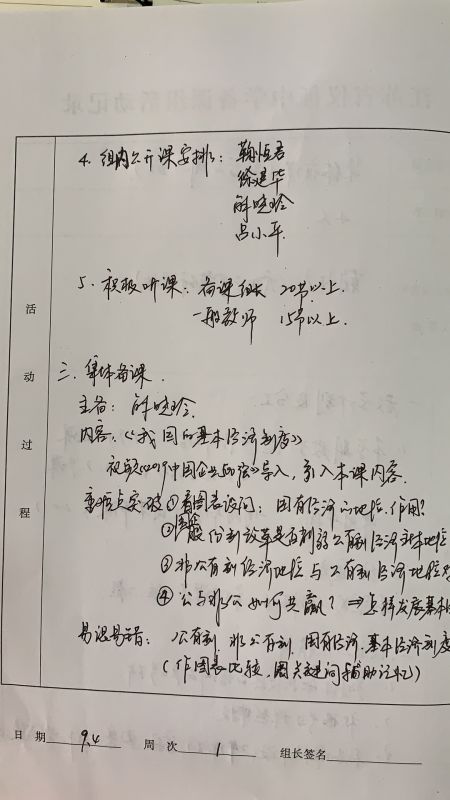 4. 组内公开课安排: 鞠恒君
徐建华
解晓玲
吕小平
5. 积极听课: 备课组长 20节以上.
一般教师 15节以上.
活动过程
三. 集体备课.
主备: 解晓玲
内容: 《我国的基本经济制度》
视频《中国企业500强》导入, 引入本课内容.
重难点突破 ①看图表设问: 国有经济的地位、作用?
② 股份制改革是否削弱公有制经济主体地位
③ 非公有制经济地位与公有制经济地位
④ 公与非公如何共赢? ⇒怎样发展基本
易混易错: 公有制、非公有制、国有经济、基本经济制度
(作图表比较, 圈关键词辅助记忆)
日 期 9.4 周 次 1 组长签名